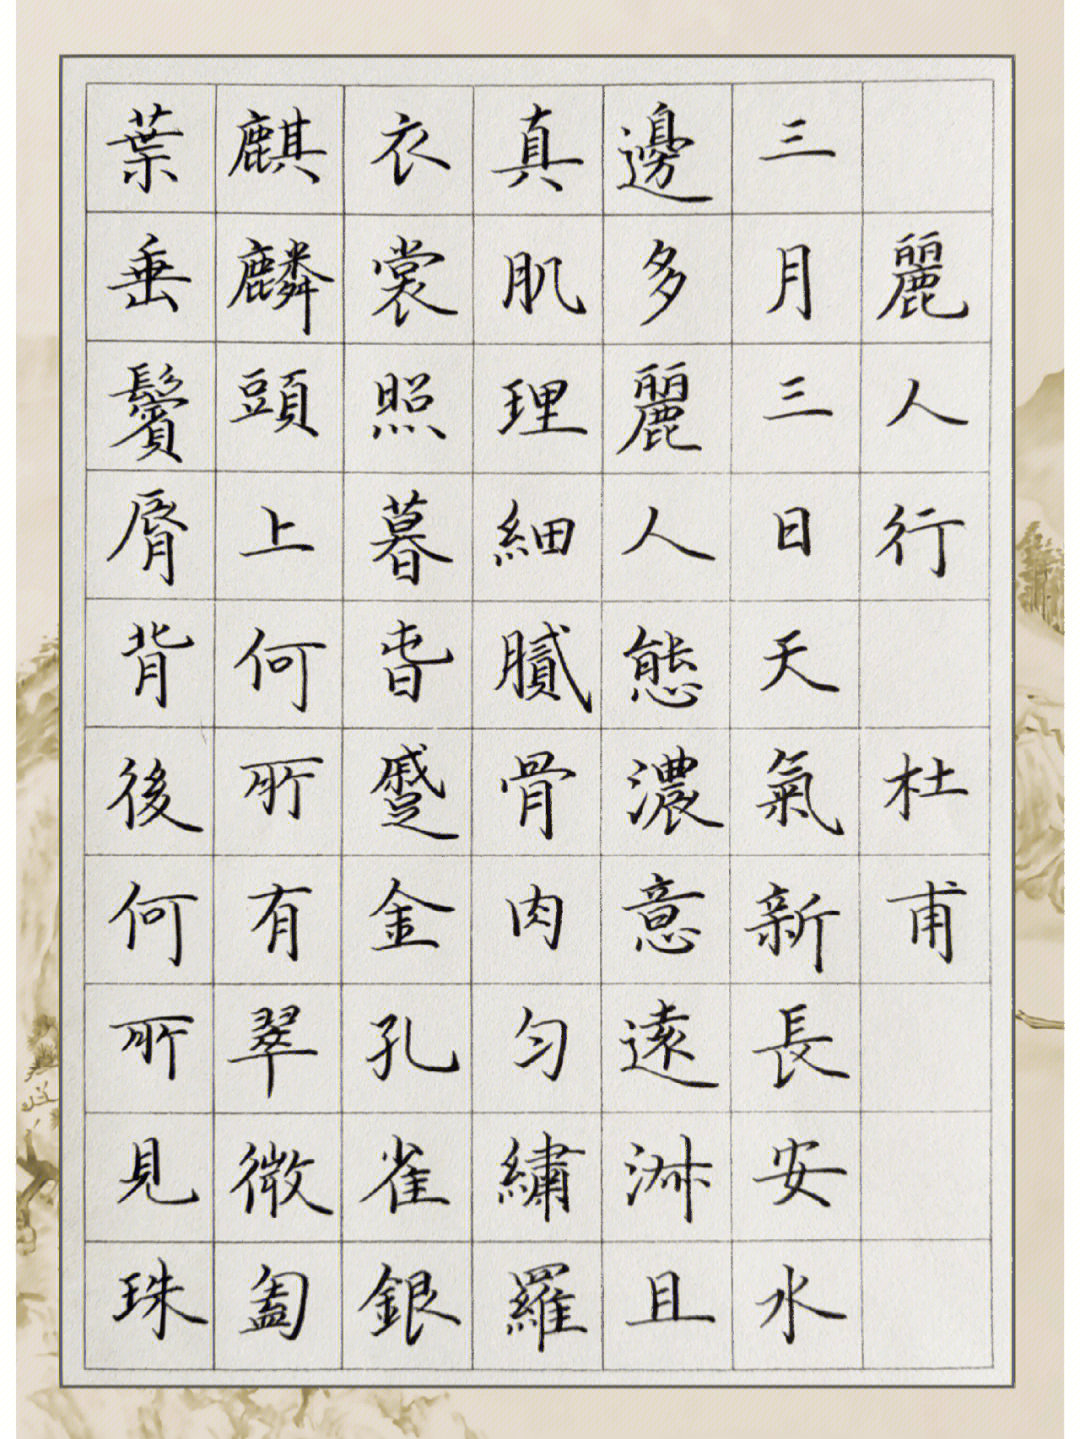 麗人行 杜甫
三月三日天氣新長安水
邊多麗人態濃意遠淑且
真肌理細膩骨肉勻繡羅
衣裳照暮旾蹙金孔雀銀
麒麟頭上何所有翠微㔩
葉垂鬢脣背後何所見珠